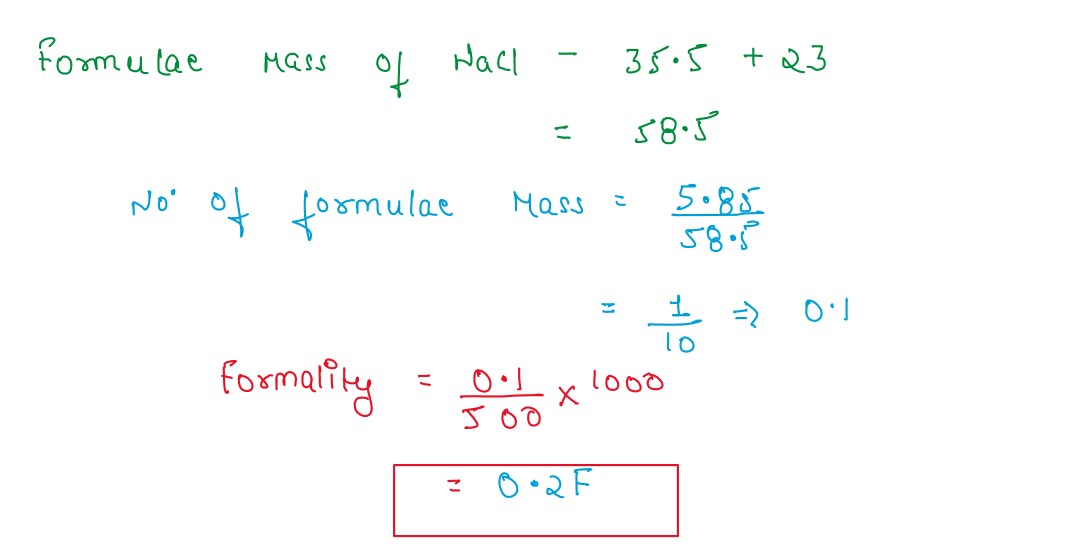 Formulae Mass of NaCl - 35.5 + 23
= 58.5
No. of formulae Mass = 5.85/58.5
= 1/10 => 0.1
Formality = 0.1/500 × 1000
= 0.2F